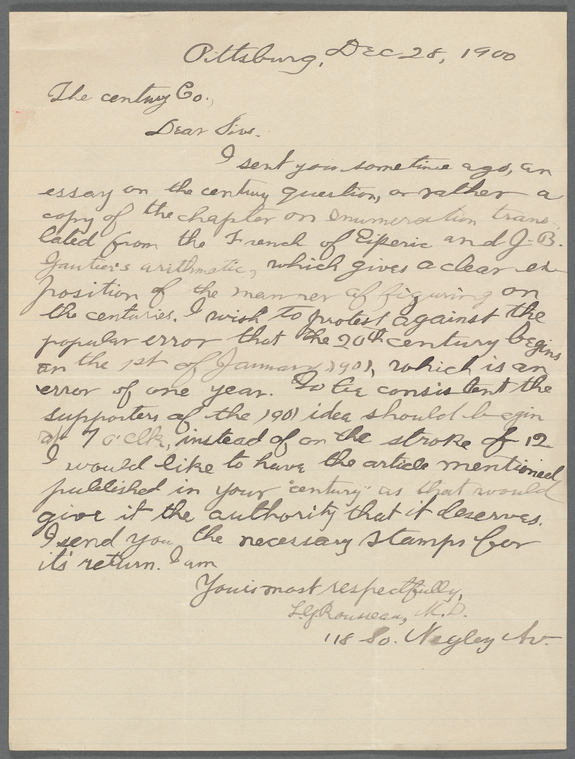 Pittsburg, Dec 28, 1900
The century Co.,
Dear Sirs.
I sent you sometime ago, an
essay on the century question, or rather a
copy of the chapter on enumeration trans-
lated from the French of Eiperic and J-B.
Gautier's arithmatic, which gives a clear ex-
position of the manner of figuring on
the centuries. I wish to protest against the
popular error that the 20th century begins
on the 1st of January 1901, which is an
error of one year. To be consistent the
supporters of the 1901 idea should begin
at 1 o'clk, instead of on the stroke of 12
I would like to have the article mentioned
published in your "century" as that would
give it the authority that it deserves.
I send you the necessary stamps for
it's return. I am
Yours most respectfully,
L.G. Rousseau, M.D.
118 So. Negley Av.